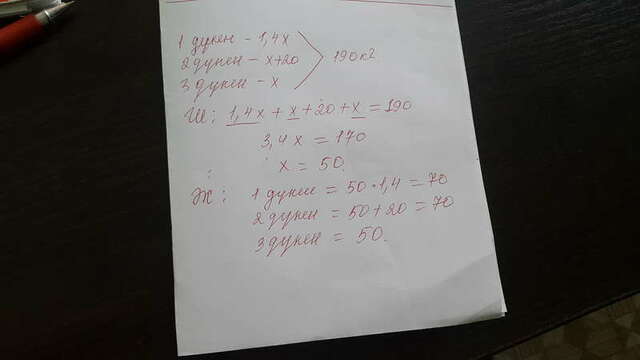 1 дукен - 1,4x
2 дукен - x+20 190кг
3 дукен - x
Ш: 1,4x + x + 20 + x = 190
3,4x = 170
x = 50.
Ж: 1 дукен = 50 • 1,4 = 70
2 дукен = 50 + 20 = 70
3 дукен = 50.